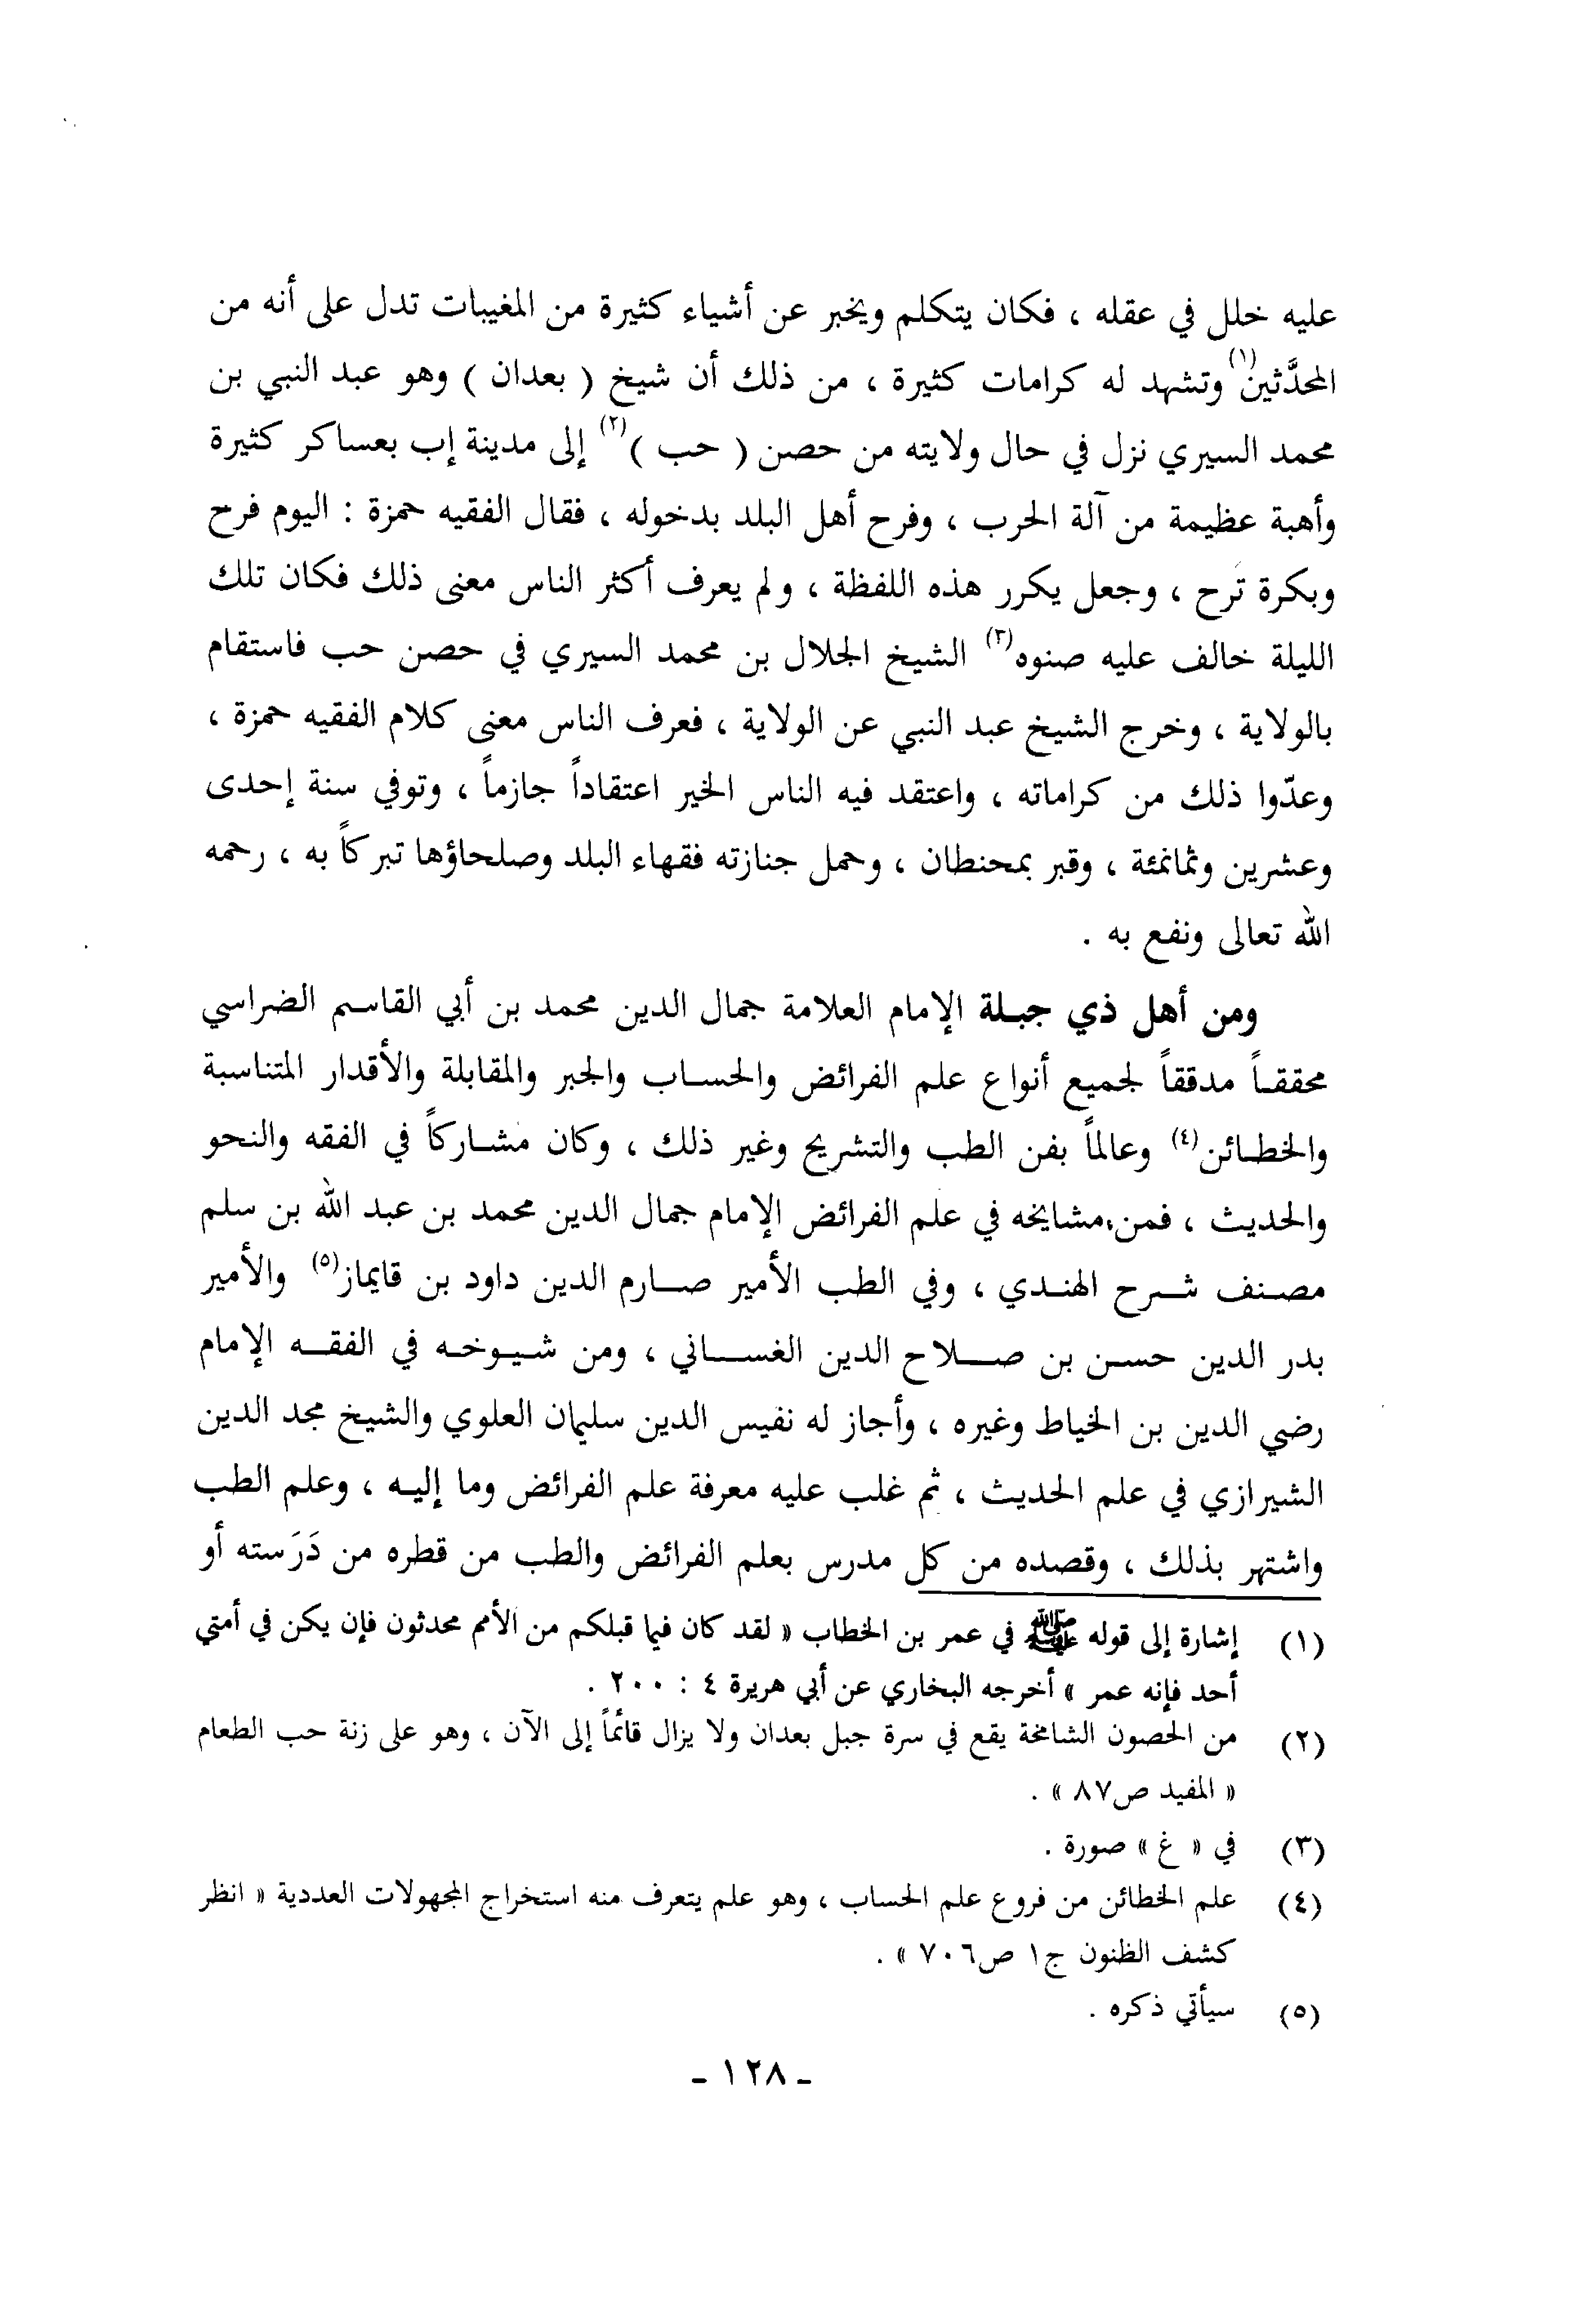 عليه خلل في عقله ، فكان يتكلم ويخبر عن أشياء كثيرة من المغيبات تدل على أنه من
المحدَّثين(١) وتشهد له كرامات كثيرة ، من ذلك أن شيخ ( بعدان ) وهو عبد النبي بن
محمد السيري نزل في حال ولايته من حصن ( حب )(٢) إلى مدينة إب بعساكر كثيرة
وأهبة عظيمة من آلة الحرب ، وفرح أهل البلد بدخوله ، فقال الفقيه حمزة : اليوم فرح
وبكرة تَرح ، وجعل يكرر هذه اللفظة ، ولم يعرف أكثر الناس معنى ذلك فكان تلك
الليلة خالف عليه صنوه(٣) الشيخ الجلال بن محمد السيري في حصن حب فاستقام
بالولاية ، وخرج الشيخ عبد النبي عن الولاية ، فعرف الناس معنى كلام الفقيه حمزة ،
وعدّوا ذلك من كراماته ، واعتقد فيه الناس الخير اعتقاداً جازماً ، وتوفي سنة إحدى
وعشرين وثمانمئة ، وقبر بمحنطان ، وحمل جنازته فقهاء البلد وصلحاؤها تبركاً به ، رحمه
الله تعالى ونفع به .
ومن أهل ذي جبلة الإمام العلامة جمال الدين محمد بن أبي القاسم الضراسي
محققاً مدققاً لجميع أنواع علم الفرائض والحساب والجبر والمقابلة والأقدار المتناسبة
والخطائن(٤) وعالماً بفن الطب والتشريح وغير ذلك ، وكان مشاركاً في الفقه والنحو
والحديث ، فمن مشايخه في علم الفرائض الإمام جمال الدين محمد بن عبد الله بن سلم
مصنف شرح الهندي ، وفي الطب الأمير صارم الدين داود بن قايماز(٥) والأمير
بدر الدين حسن بن صلاح الدين الغساني ، ومن شيوخه في الفقه الإمام
رضي الدين بن الخياط وغيره ، وأجاز له نفيس الدين سليمان العلوي والشيخ مجد الدين
الشيرازي في علم الحديث ، ثم غلب عليه معرفة علم الفرائض وما إليه ، وعلم الطب
واشتهر بذلك ، وقصده من كل مدرس بعلم الفرائض والطب من قطره من دَرَسته أو
(١) إشارة إلى قوله ﷺ في عمر بن الخطاب « لقد كان فيما قبلكم من الأمم محدثون فإن يكن في أمتي
أحد فإنه عمر » أخرجه البخاري عن أبي هريرة ٤ : ٢٠٠ .
(٢) من الحصون الشامخة يقع في سرة جبل بعدان ولا يزال قائماً إلى الآن ، وهو على زنة حب الطعام
« المفيد ص٨٧ » .
(٣) في « غ » صورة .
(٤) علم الخطائن من فروع علم الحساب ، وهو علم يتعرف منه استخراج المجهولات العددية « انظر
كشف الظنون ج١ ص٧٠٦ » .
(٥) سيأتي ذكره .
- ١٢٨ -